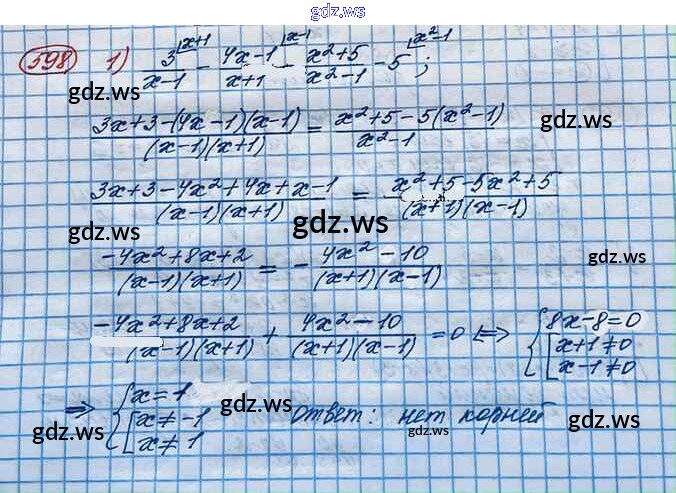 gdz.ws
598 1) 3^{|x+1}/(x-1) - (4x-1)^{|x-1}/(x+1) - (x²+5)/(x²-1) - 5^{|x²-1};
gdz.ws
(3x+3-(4x-1)(x-1))/((x-1)(x+1)) = (x²+5-5(x²-1))/(x²-1)
gdz.ws
(3x+3-4x²+4x+x-1)/((x-1)(x+1)) = (x²+5-5x²+5)/((x+1)(x-1))
gdz.ws
gdz.ws
(-4x²+8x+2)/((x-1)(x+1)) = -(4x²-10)/((x+1)(x-1))
gdz.ws
(-4x²+8x+2)/((x-1)(x+1)) + (4x²-10)/((x+1)(x-1)) = 0 ⇔ { 8x-8=0
[ x+1≠0
x-1≠0
gdz.ws
⇒ { x=1
[ x≠-1
x≠1
Ответ: нет корней
gdz.ws
gdz.ws
gdz.ws
gdz.ws